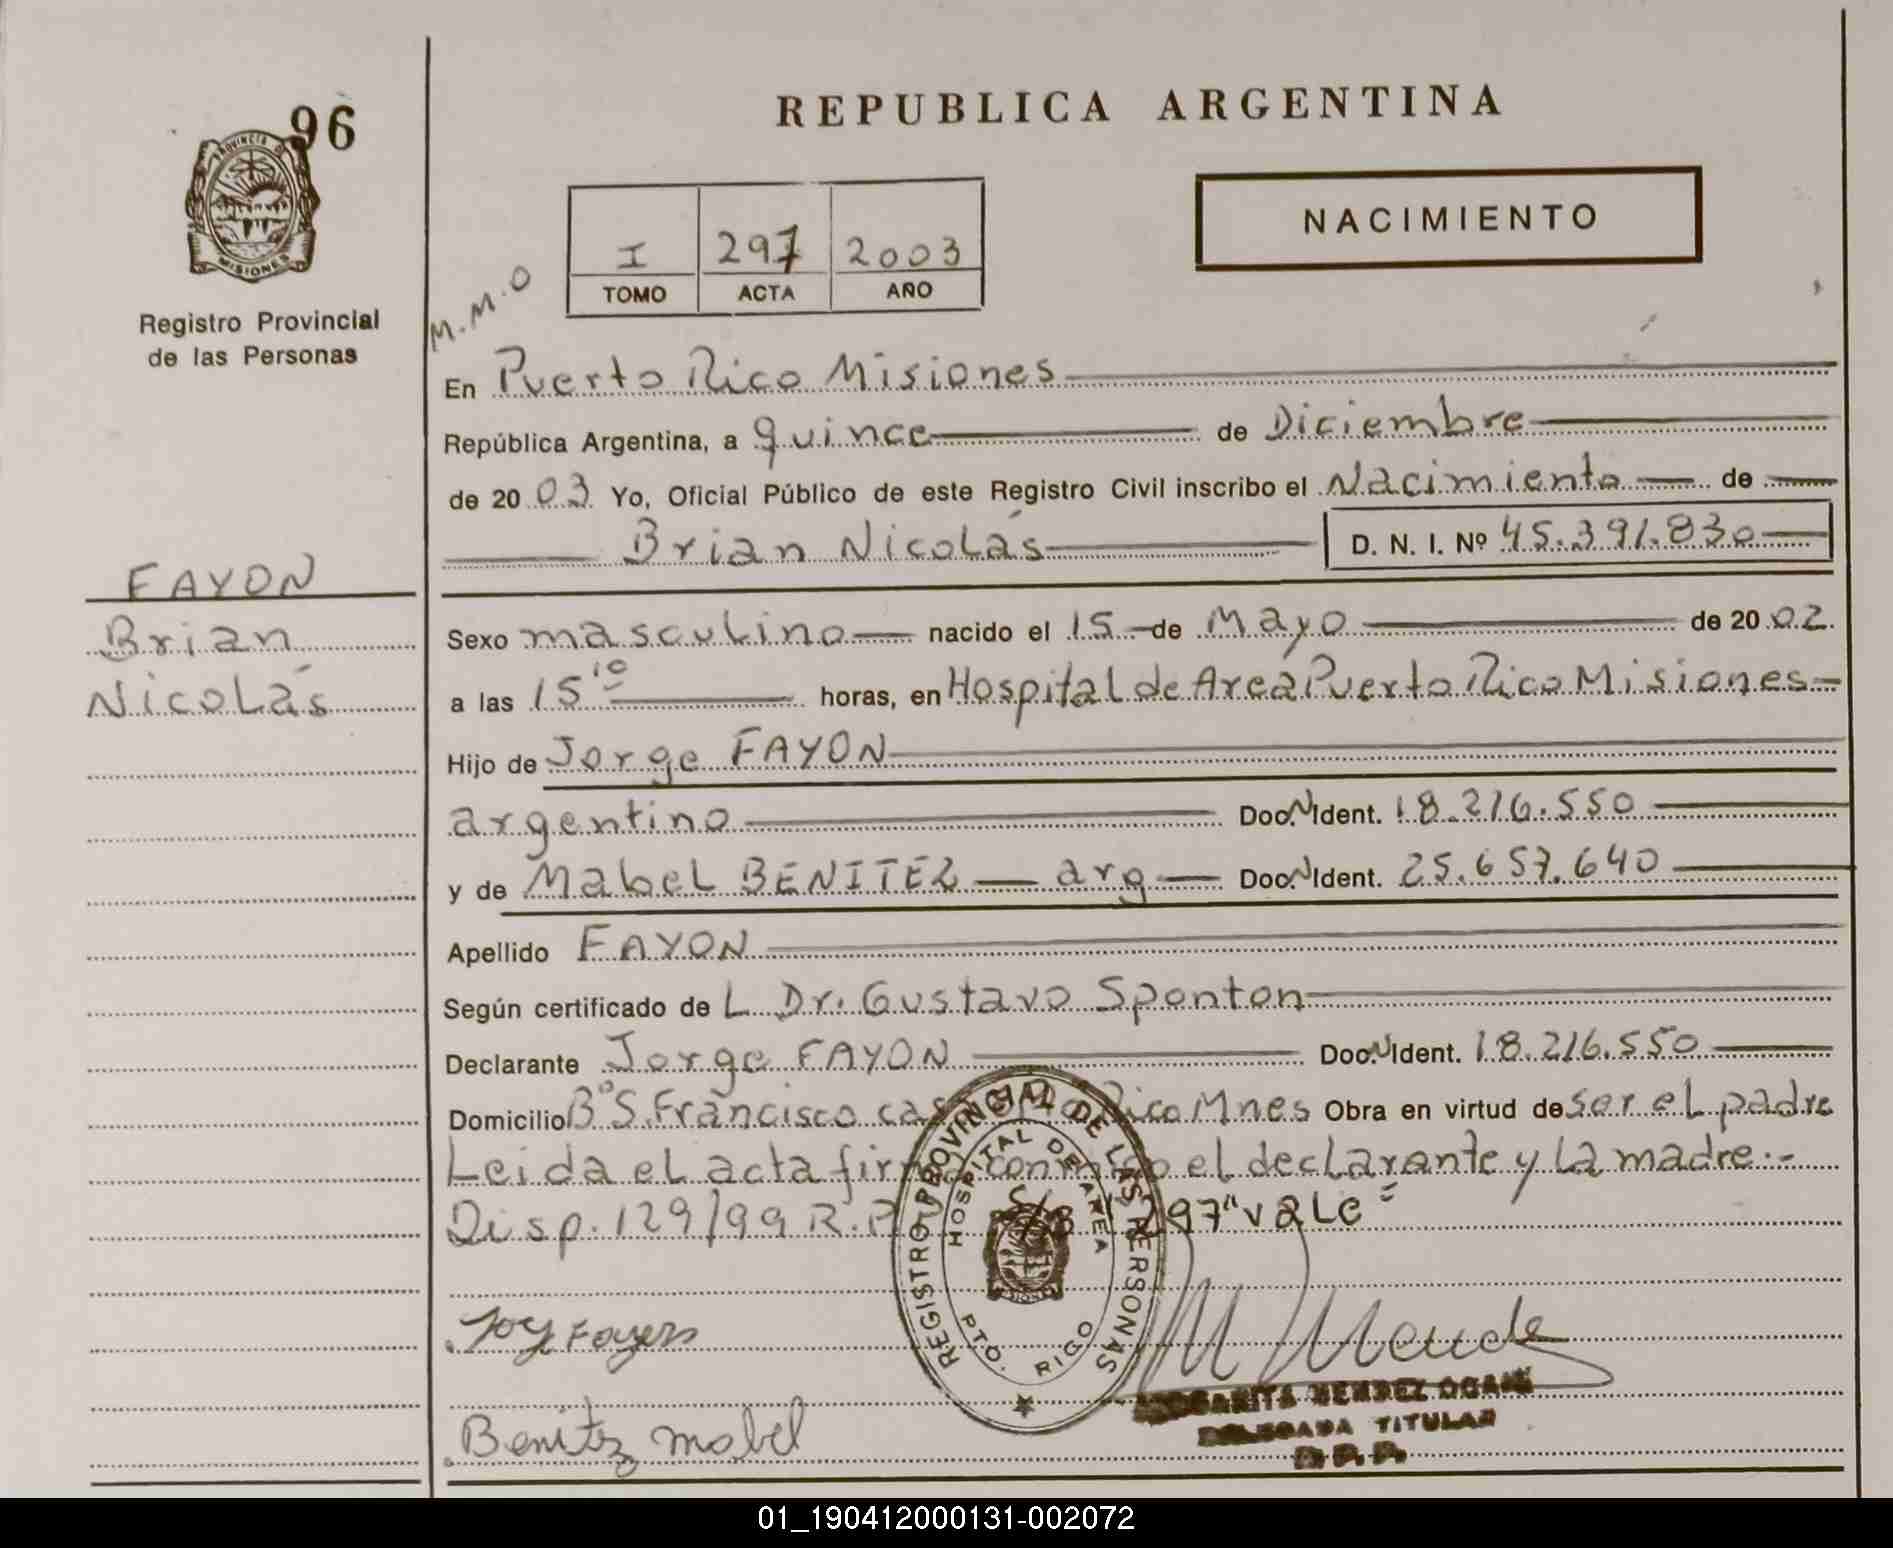 96
PROVINCIA DE
MISIONES
Registro Provincial
de las Personas
REPUBLICA ARGENTINA
NACIMIENTO
I 297 2003
TOMO ACTA AÑO
M.M.O
En Puerto Rico Misiones
República Argentina, a quince de Diciembre
de 2003 Yo, Oficial Público de este Registro Civil inscribo el Nacimiento de
Brian Nicolás D. N. I. Nº 45.391.830
FAYON
Brian
Nicolás
Sexo masculino nacido el 15 de Mayo de 2002.
a las 15 10 horas, en Hospital de Area Puerto Rico Misiones
Hijo de Jorge FAYON
argentino Doc.N Ident. 18.216.550
y de Mabel BENITEZ arg Doc.N Ident. 25.657.640
Apellido FAYON
Según certificado de L Dr. Gustavo Sponton
Declarante Jorge FAYON Doc.N Ident. 18.216.550
Domicilio Bº S. Francisco Rico Mnes Obra en virtud de ser el padre
Leida el acta el declarante y la madre.-
Disp. 129/99 R.P. 297 "vale"
REGISTRO PROVINCIAL DE LAS PERSONAS
HOSPITAL DE AREA
PTO. RICO
MISIONES
Benitez mabel
MENDEZ
DELEGADA TITULAR
01_190412000131-002072